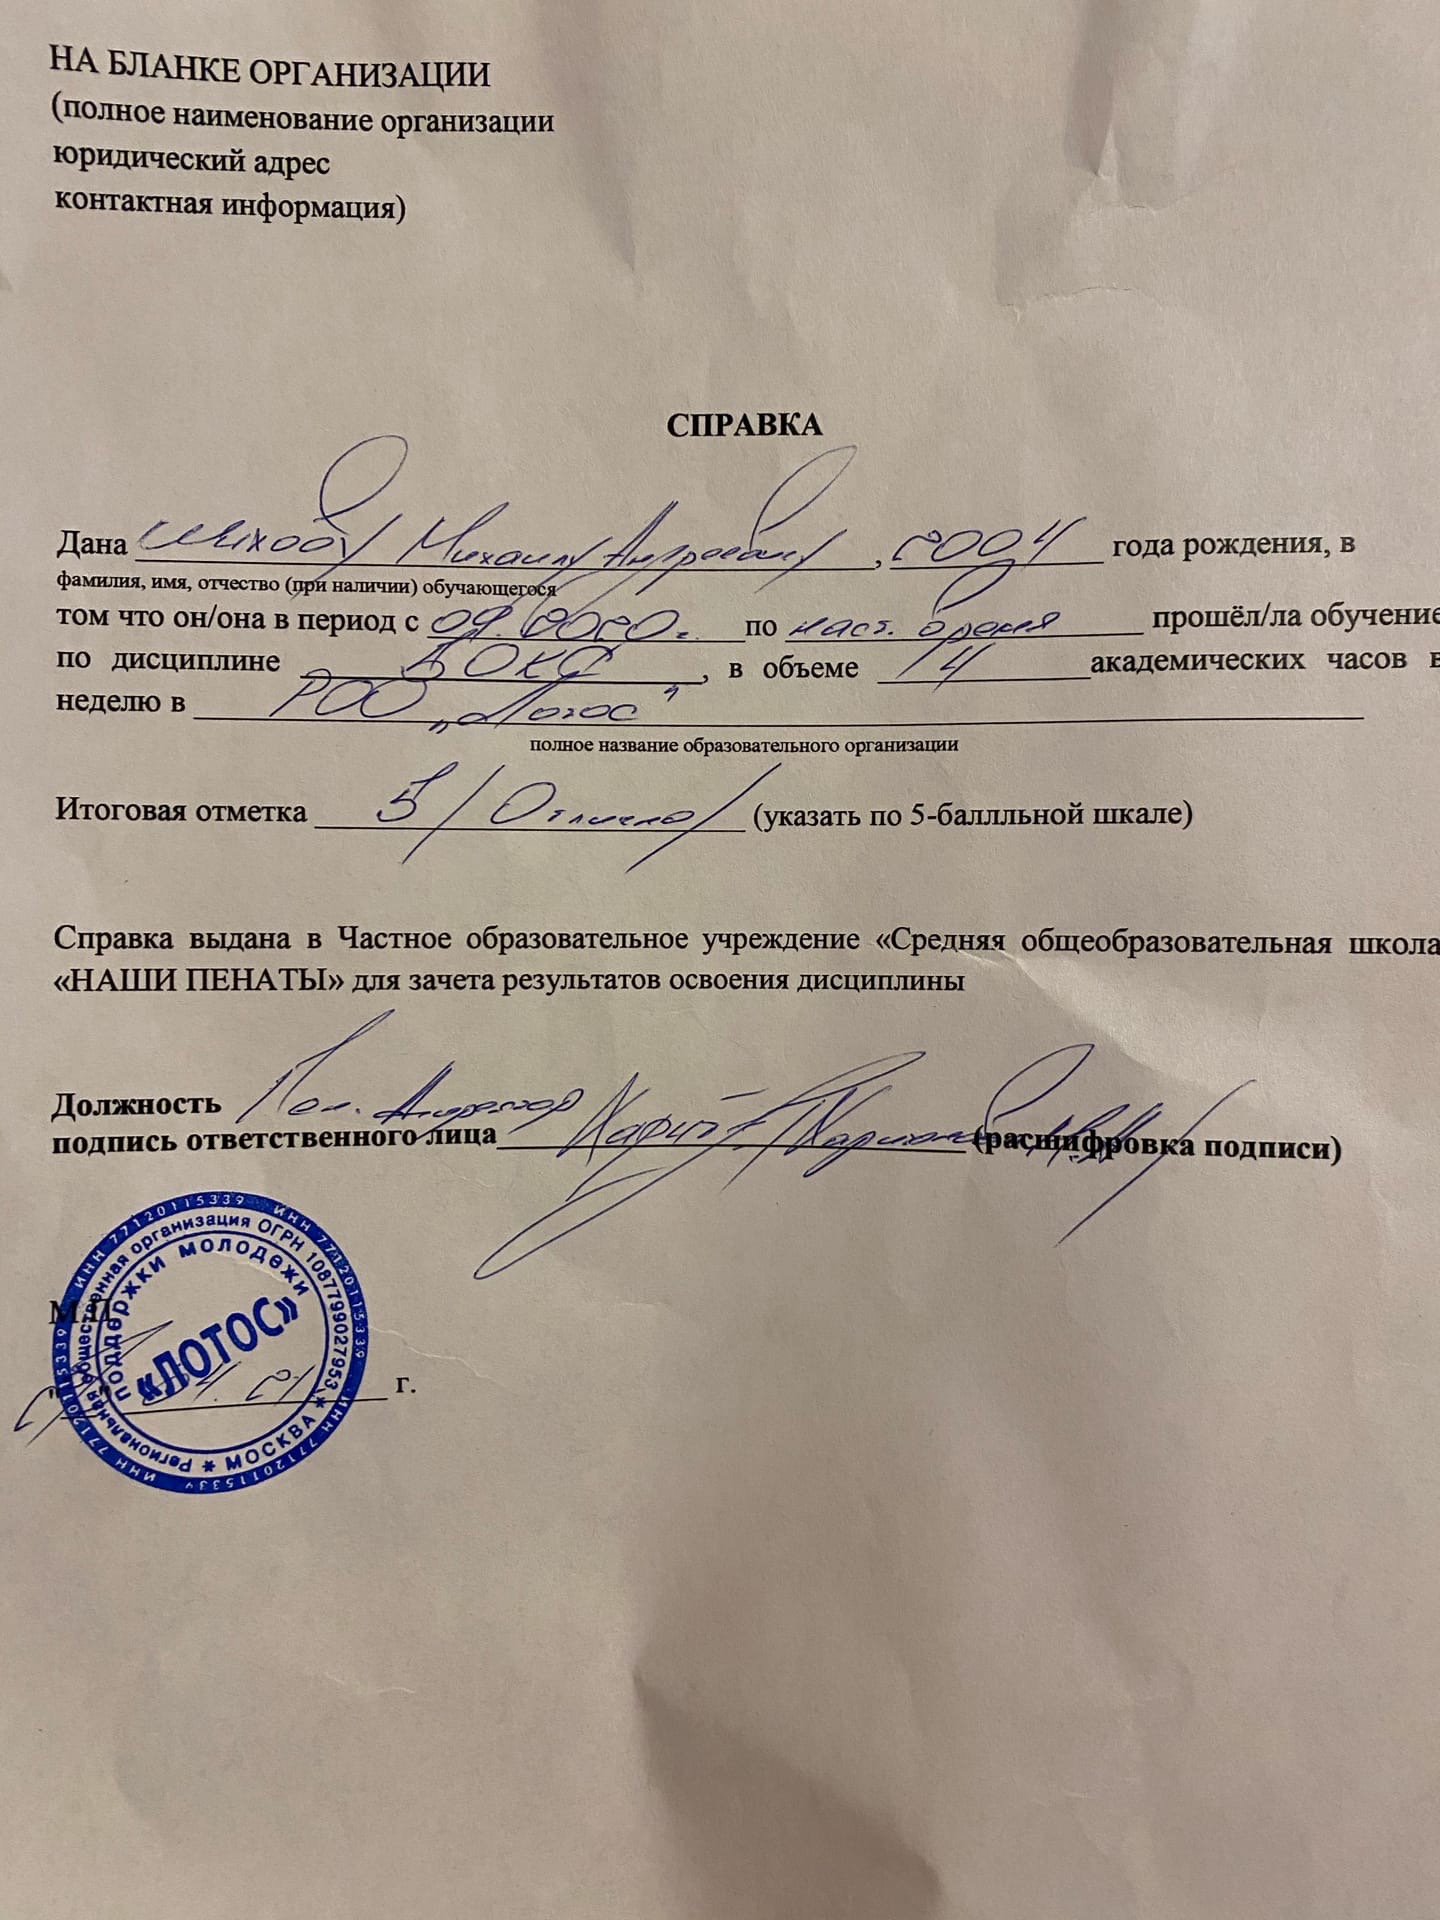 НА БЛАНКЕ ОРГАНИЗАЦИИ
(полное наименование организации
юридический адрес
контактная информация)
СПРАВКА
Дана Михаилу Андреевичу, 2004 года рождения, в
фамилия, имя, отчество (при наличии) обучающегося
том что он/она в период с 09. 2020г. по наст. время прошёл/ла обучение
по дисциплине БОКС, в объеме 14 академических часов в
неделю в РОО „Лотос"
полное название образовательного организации
Итоговая отметка 5/Отлично/ (указать по 5-баллльной шкале)
Справка выдана в Частное образовательное учреждение «Средняя общеобразовательная школа
«НАШИ ПЕНАТЫ» для зачета результатов освоения дисциплины
Должность
подпись ответственного лица (расшифровка подписи)
М.П.
04. 21 г.
ИНН 77120115339 ИНН 77120115339 ИНН 77120115339 ИНН 77120115339
Региональная общественная организация ОГРН 1087799027953 * МОСКВА *
поддержки молодежи
«ЛОТОС»